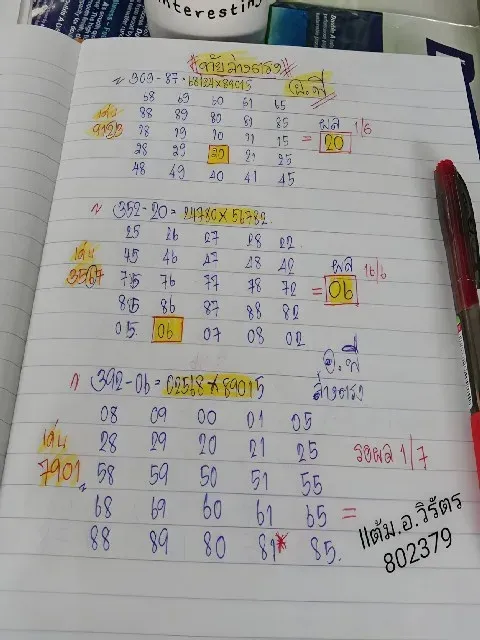 interesting
*ทับล่างตรง*
~ 363-87 · 68124×89015 อ.พี่
68 69 60 61 65
88 89 80 81 85
18 19 10 11 15
28 29 20 21 25
48 49 40 41 45
เด่น
ผล 1/6
= 20
~ 352-20 = 24780×56782
25 26 27 28 22
45 46 47 48 42
75 76 77 78 72
85 86 87 88 82
05 06 07 08 02
เด่น
3567
ผล 16/6
= 06
อ.พี่
ล่างตรง
ก 392-06 = 02568×89015
08 09 00 01 05
28 29 20 21 25
58 59 50 51 55
68 69 60 61 65 =
88 89 80 81* 85.
เด่น
7901
รอผล 1/7
แต้ม.อ.วิรัตร
802379